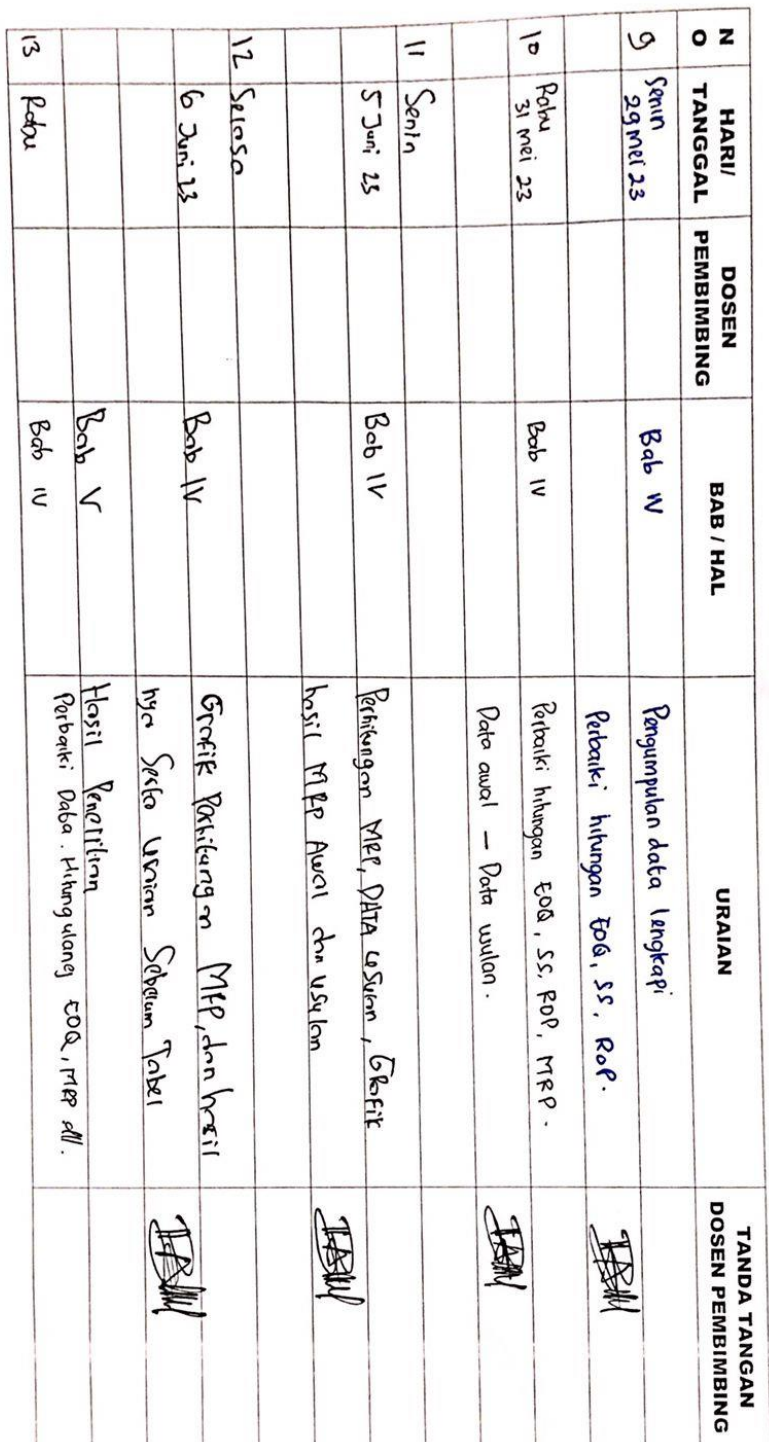 N O HARI/ TANGGAL DOSEN PEMBIMBING BAB / HAL URAIAN TANDA TANGAN DOSEN PEMBIMBING
9 Senin Bab IV Pengumpulan data lengkapi
29 mei 23
Perbaiki hitungan EOQ, SS, ROP.
10 Rabu Bab IV Perbaiki hitungan EOQ, SS, ROP, MRP.
31 mei 23
Data awal – Data
11 Senin
5 Juni 23 Bab IV Perhitungan MRP, DATA usulan, Grafik
hasil MRP Awal dan usulan
12 Selasa
6 Juni 23 Bab IV Grafik Perhitungan MRP, dan hasil
nya uraian Sebelum Tabel
Bab V Hasil Penelitian
13 Rabu Bab IV Perbaiki Data. Hitung ulang EOQ, MRP dll.